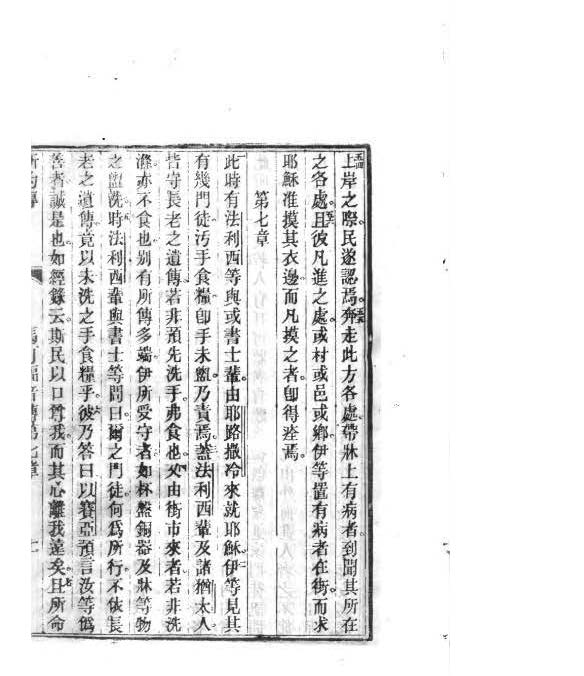 上岸之際民遂認焉奔走此方各處帶牀上有病者到聞其所在
之各處且彼凡進之處或村或邑或鄉伊等置有病者在街而求
耶穌准摸其衣邊而凡摸之者即得痊焉
第七章
此時有法利西等與或書士輩由耶路撒冷來就耶穌伊等見其
有幾門徒汚手食糧卽手未盥乃責焉蓋法利西輩及諸猶太人
皆守長老之遺傳若非預先洗手弗食也又由街市來者若非洗
滌亦不食也別有所傳多端伊所受守者如杯盤銅器及牀等物
之盥洗時法利西輩與書士等問曰爾之門徒何爲所行不依長
老之遺傳竟以未洗之手食糧乎彼乃答曰以賽亞預言汝等僞
善者誠是也如經錄云斯民以口尊我而其心離我遠矣且所命
馬可福音傳第七章 七